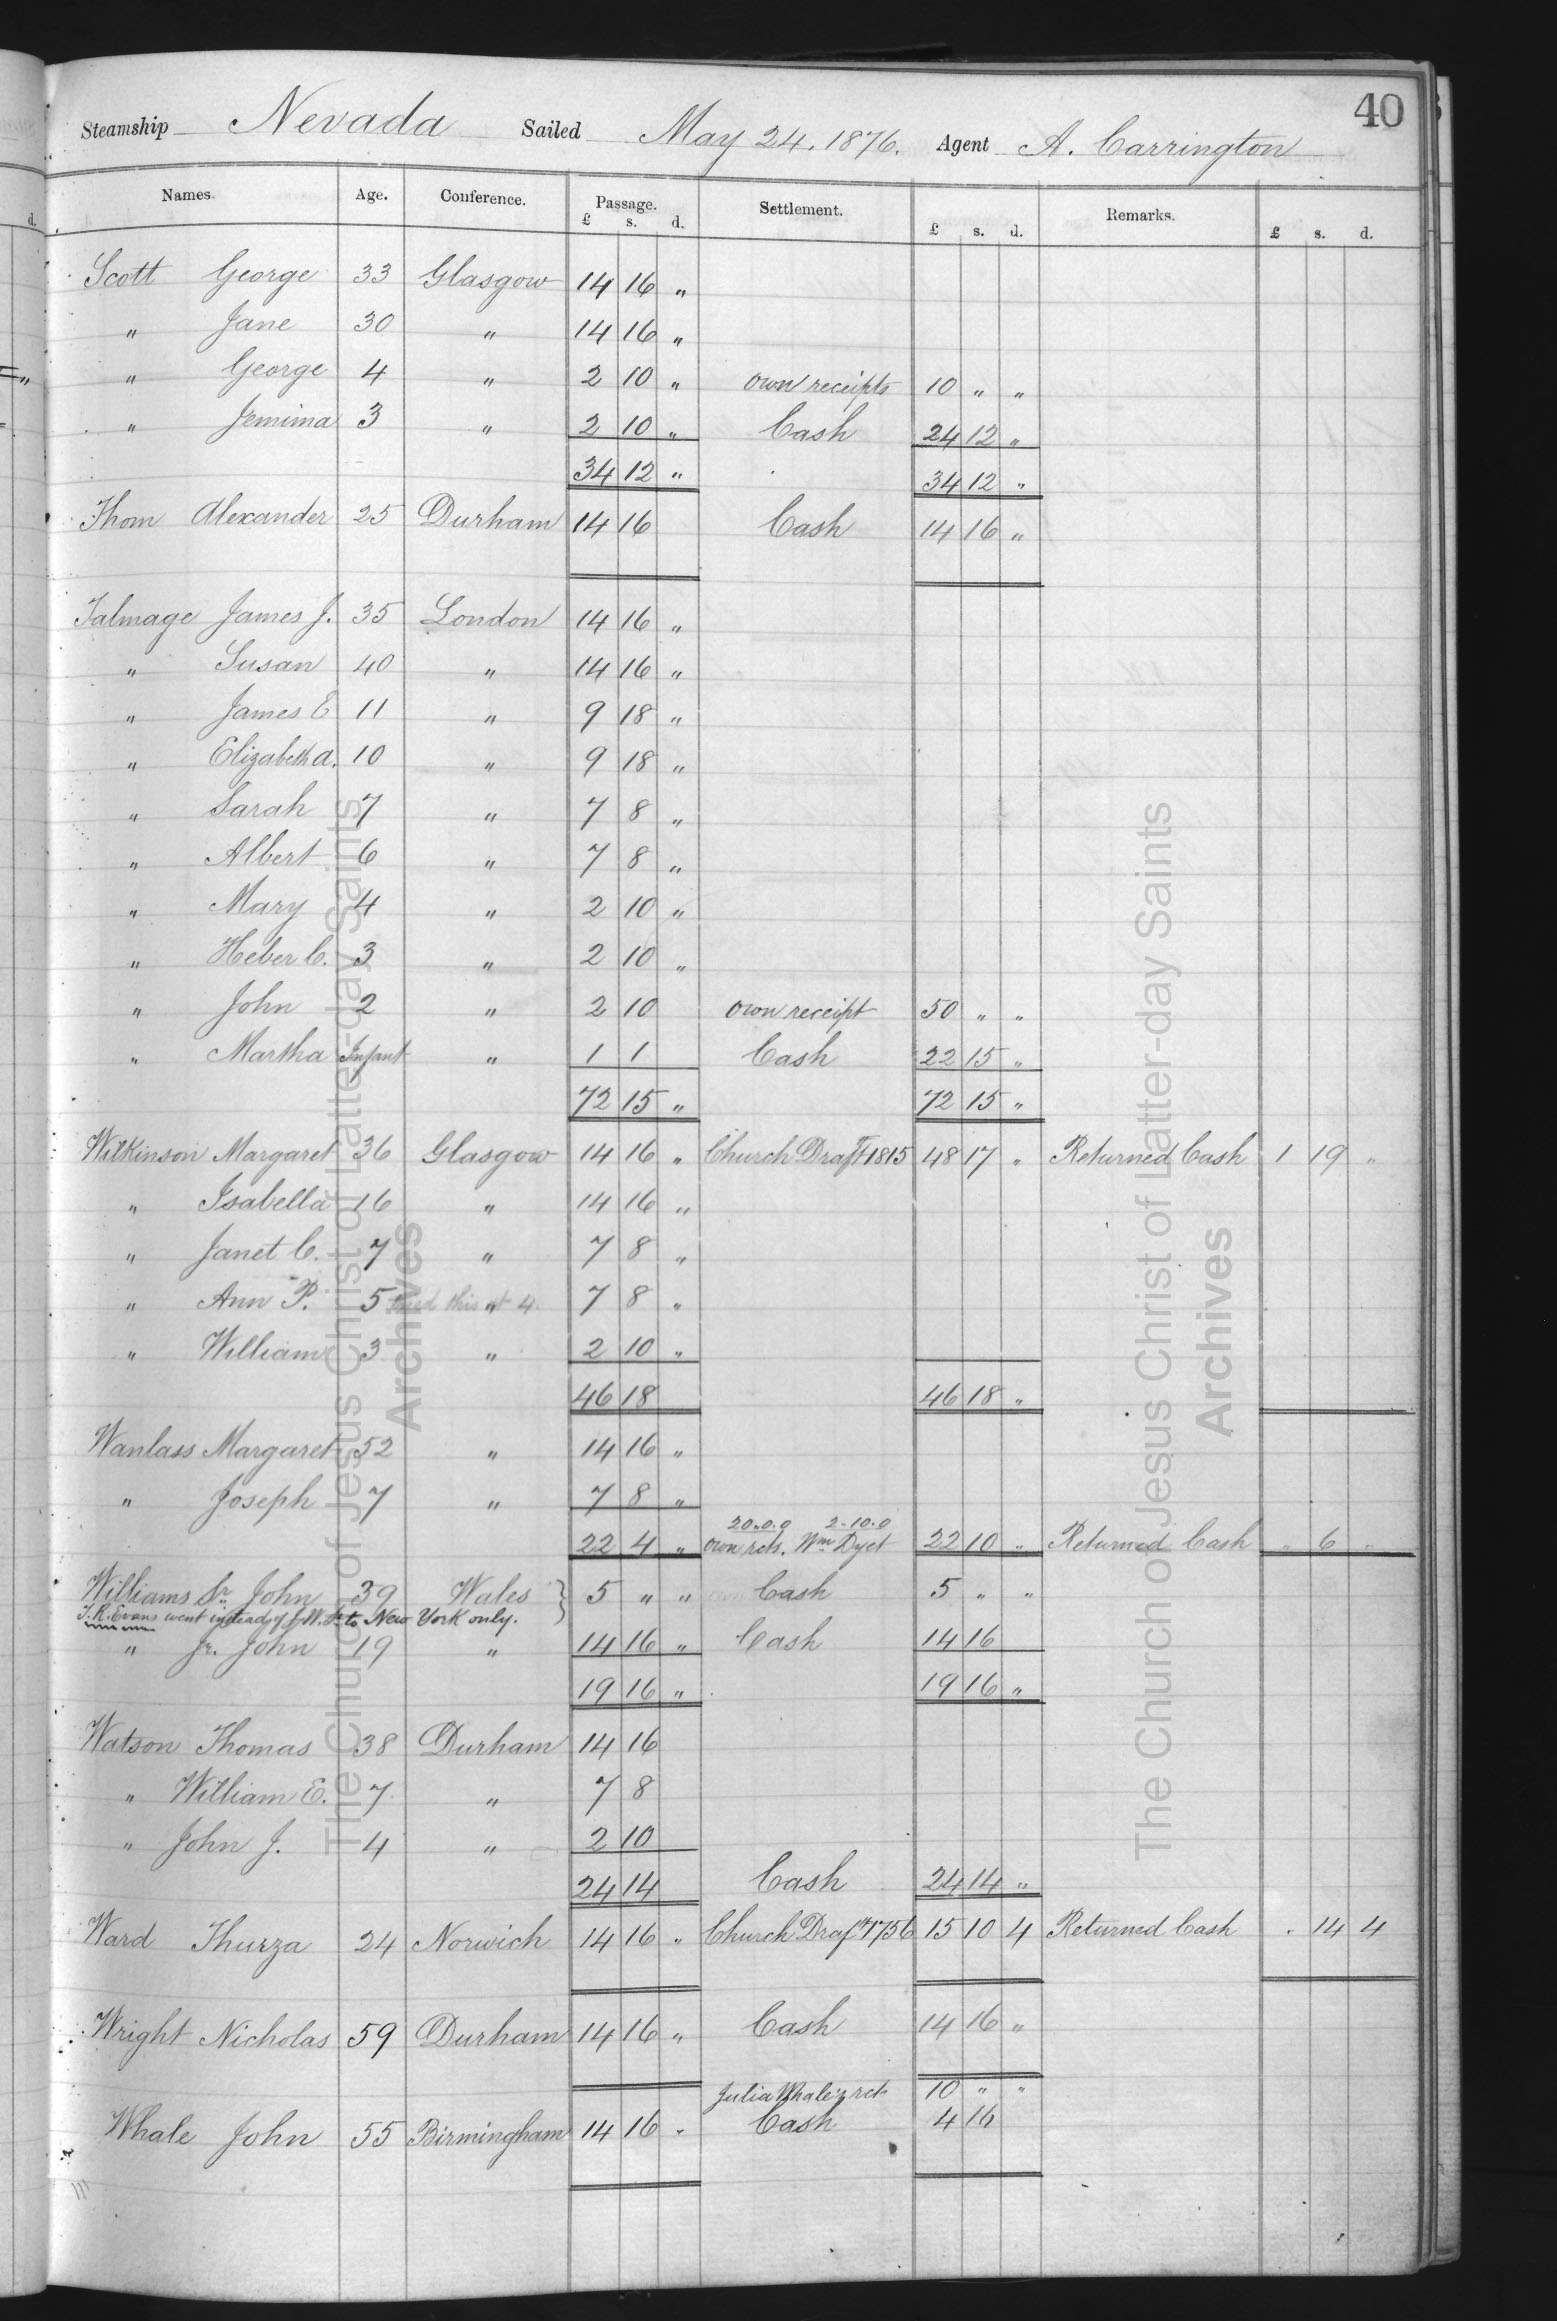 40
Steamship Nevada Sailed May 24. 1876. Agent A. Carrington
Names. Age. Conference. Passage. Settlement. Remarks.
£ s. d. £ s. d. £ s. d.
Scott George 33 Glasgow 14 16 "
" Jane 30 " 14 16 "
" George 4 " 2 10 " own receipts 10 " "
" Jemima 3 " 2 10 " Cash 24 12 "
34 12 " 34 12 "
Thom Alexander 25 Durham 14 16 Cash 14 16 "
Talmage James J. 35 London 14 16 "
" Susan 40 " 14 16 "
" James E 11 " 9 18 "
" Elizabeth A. 10 " 9 18 "
" Sarah 7 " 7 8 "
" Albert 6 " 7 8 "
" Mary 4 " 2 10 "
" Heber C. 3 " 2 10 "
" John 2 " 2 10 own receipt 50 " "
" Martha Infant " 1 1 Cash 22 15 "
72 15 " 72 15 "
Wilkinson Margaret 36 Glasgow 14 16 " Church Draft 1815 48 17 " Returned Cash 1 19 "
" Isabella 16 " 14 16 "
" Janet C. 7 " 7 8 "
" Ann P. 5 this at 4. " 7 8 "
" William 3 " 2 10 "
46 18 46 18 "
Wanlass Margaret 52 " 14 16 "
" Joseph 7 " 7 8 "
20.0.0 2.10.0
22 4 " own rcts. Wm Dyet 22 10 " Returned Cash " 6 "
Williams Sr. John 39 Wales } 5 " " Cash 5 " "
T.R. Evans went instead of J.W. Sr. to New York only.
" Jr. John 19 " 14 16 " Cash 14 16
19 16 " 19 16 "
Watson Thomas 38 Durham 14 16
" William E. 7 " 7 8
" John J. 4 " 2 10
24 14 Cash 24 14 "
Ward Thurza 24 Norwich 14 16 " Church Draft 1756 15 10 4 Returned Cash " 14 4
Wright Nicholas 59 Durham 14 16 " Cash 14 16 "
Julia Whale's rct 10 " "
Whale John 55 Birmingham 14 16 " Cash 4 16
The Church of Jesus Christ of Latter-day Saints
Archives
The Church of Jesus Christ of Latter-day Saints
Archives